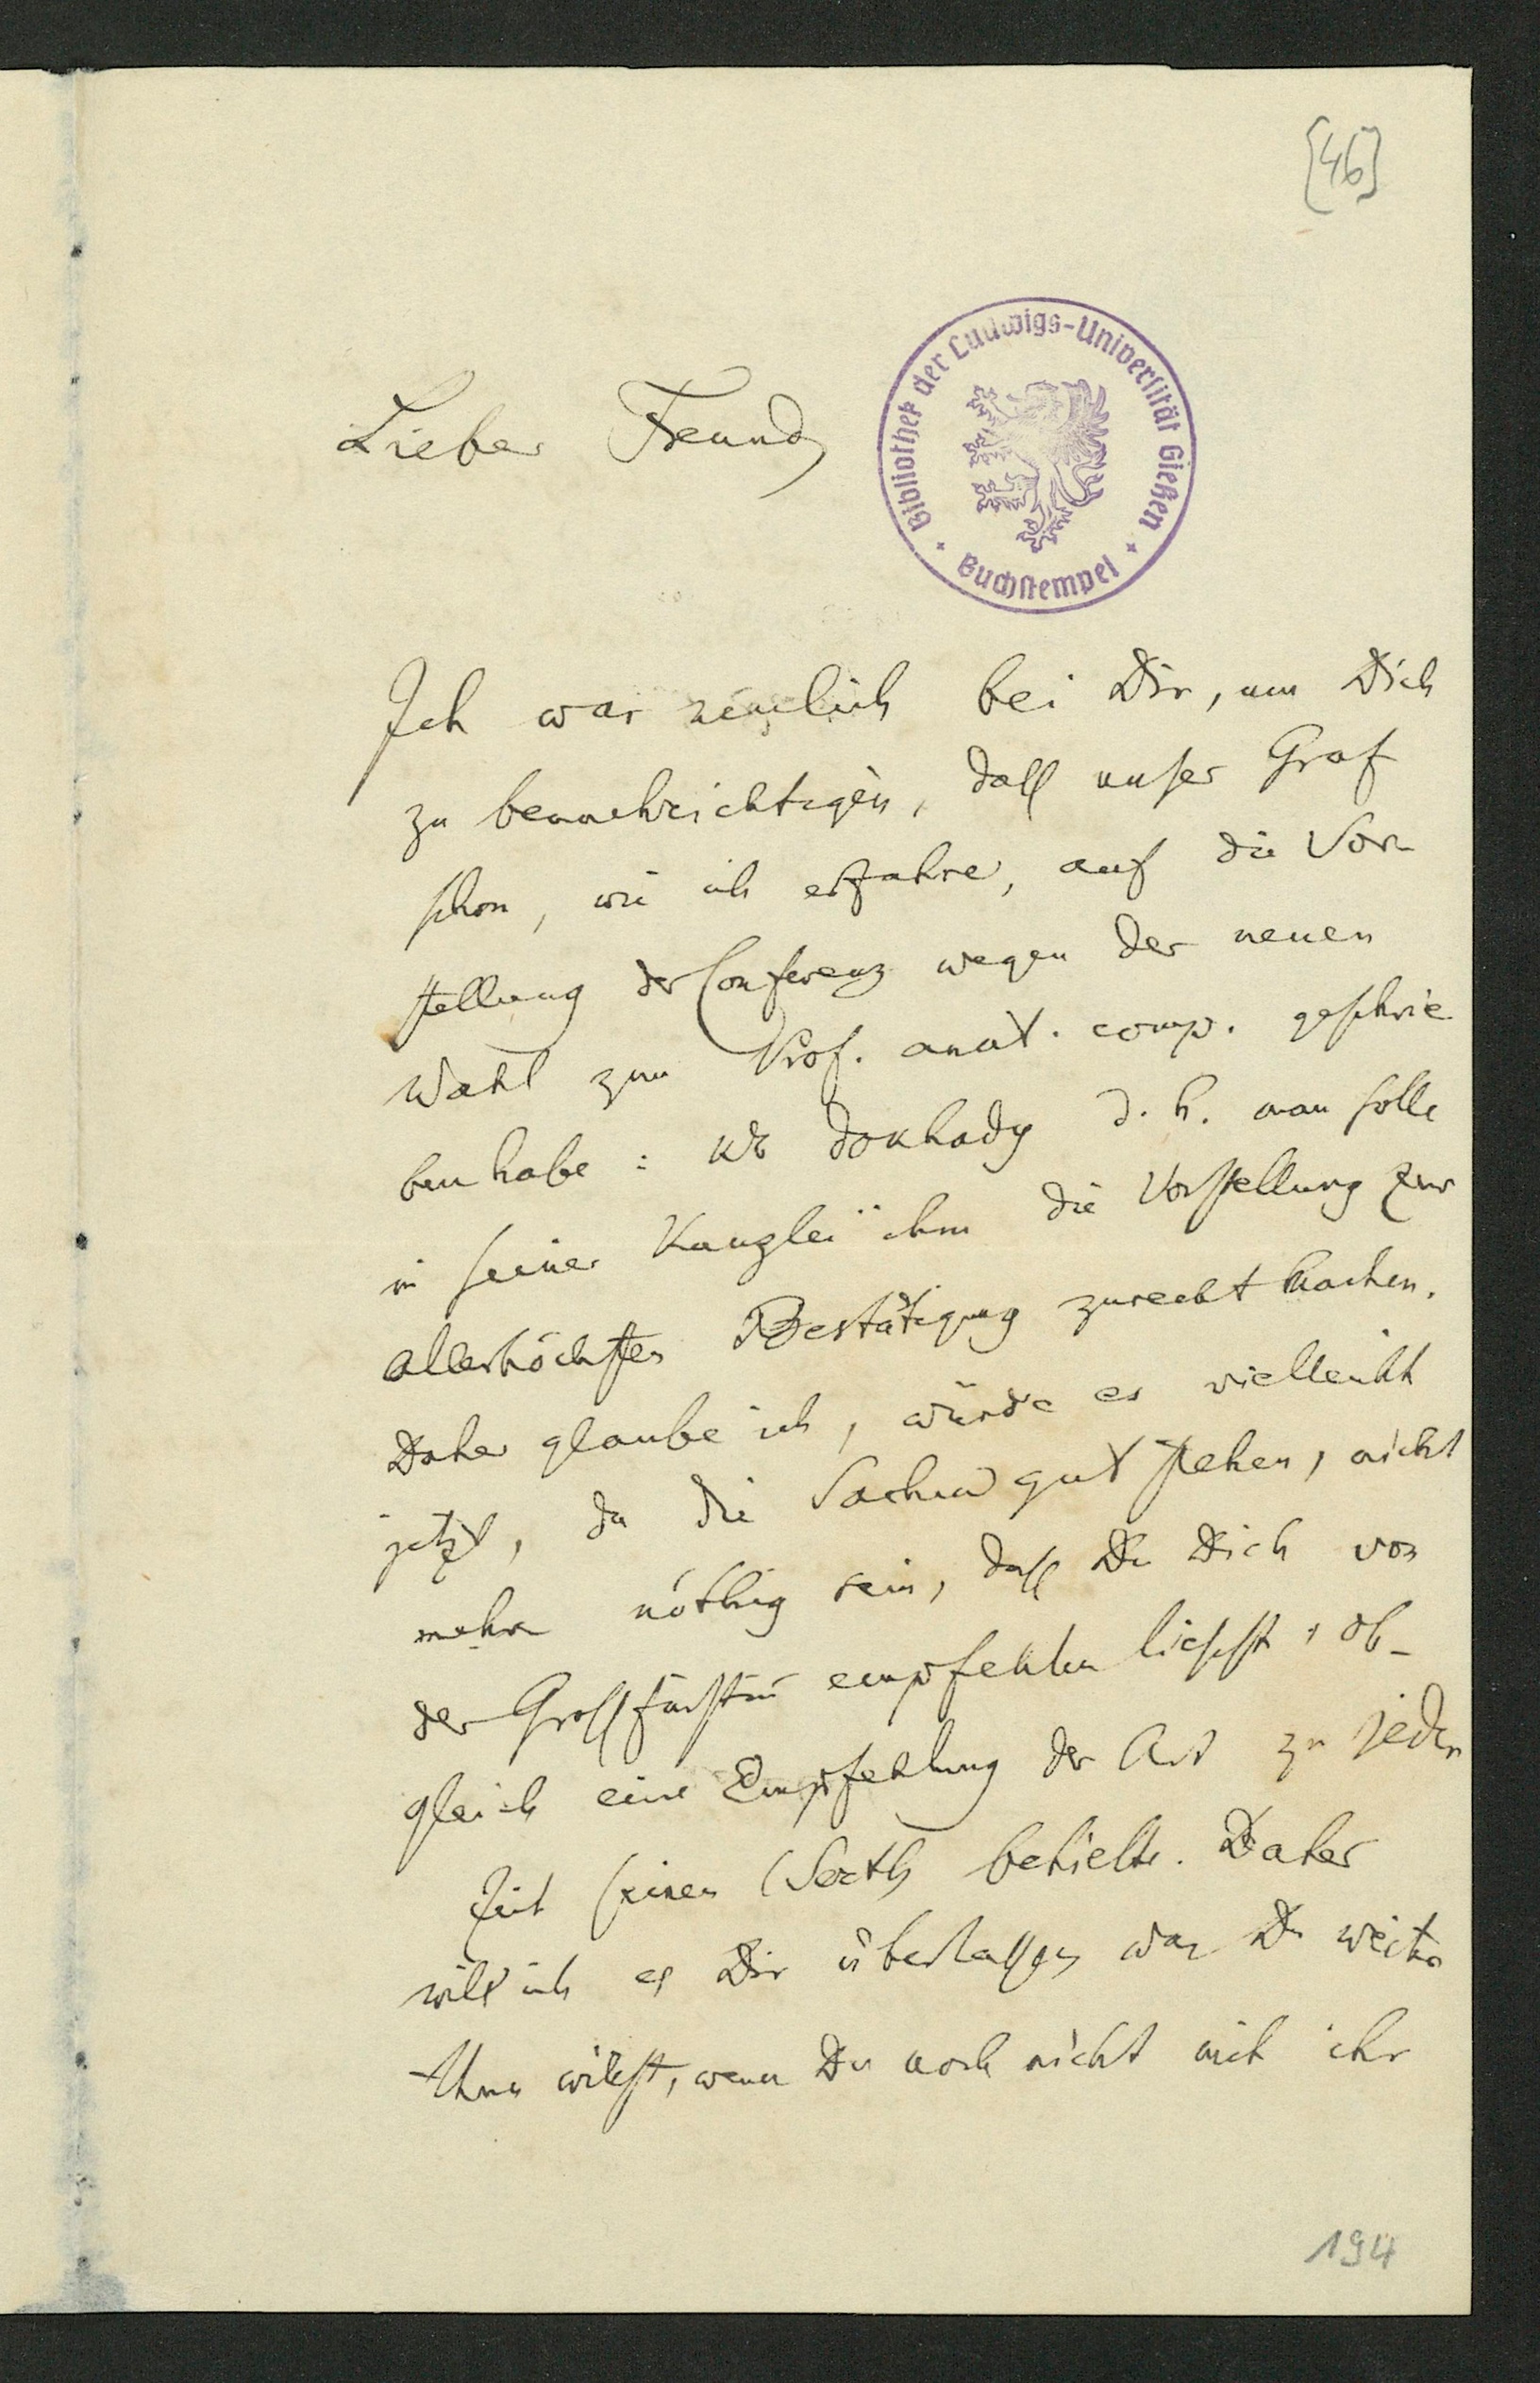 [46]
Lieber Freund
Bibliothek der Ludwigs-Universität Gießen
Buchstempel
Ich war neulich bei Dir, um Dich
zu benachrichtigen, daß unser Graf
schon, wie ich erfahre, auf die Vor
stellung der Conferenz wegen der neuen
Wahl zum Prof. anat. comp. geschrie
ben habe: къ докладу d. h. man solle
in seiner Kanzlei ihm die Vorstellung zur
allerhöchsten Bestätigung zurecht machen.
Daher glaube ich, würde es vielleicht
jetzt, da die Sachen gut stehen, nicht
mehr nöthig sein, daß Du Dich von
der Großfürstin empfehlen ließest, ob-
gleich eine Empfehlung der Art zu jeder
Zeit seinen Werth behielte. Daher
will ich es Dir überlassen was Du weiter
thun willst, wenn Du noch nicht mit ihr
194